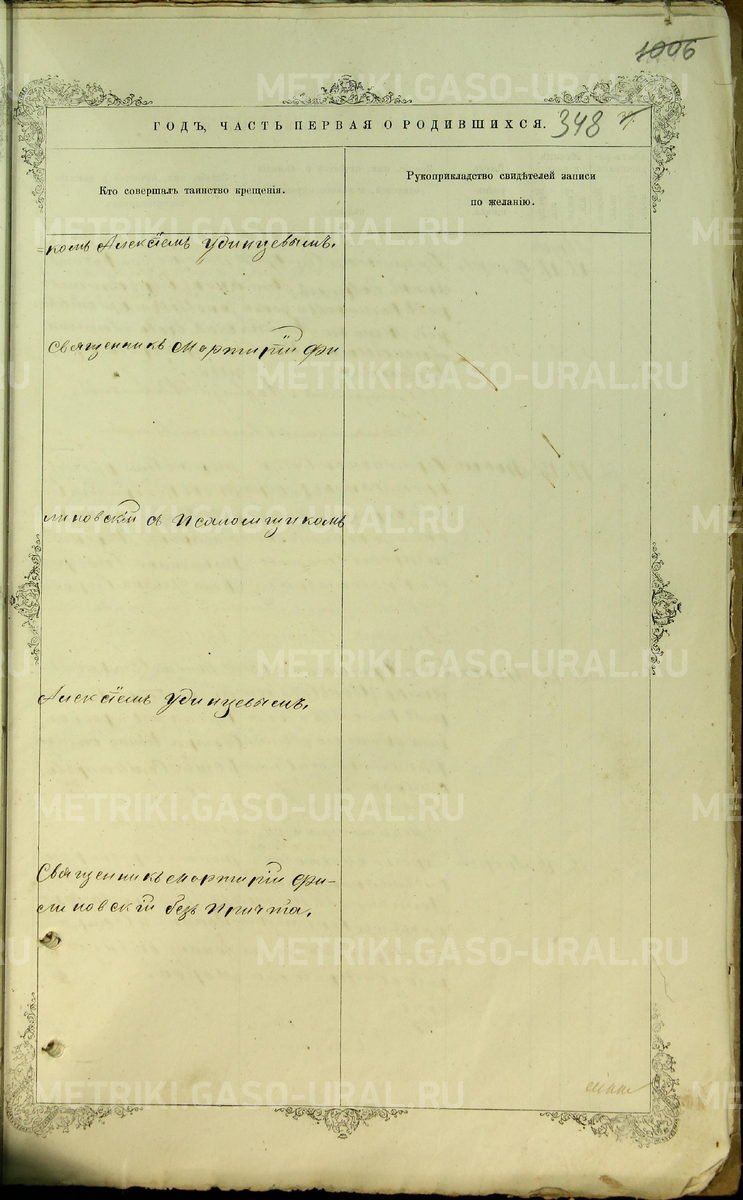 1006
ГОДЪ, ЧАСТЬ ПЕРВАЯ О РОДИВШИХСЯ. 348
Кто совершалъ таинство крещенія.
Рукоприкладство свидѣтелей записи
по желанію.
-комъ Алексіемъ Удинцевымъ.
Священникъ Мартирій Фи
линовскій съ Псаломщикомъ
Алексіемъ Удинцевымъ.
Священникъ Мартирій Фи-
линовскій безъ Причта.
METRIKI.GASO-URAL.RU